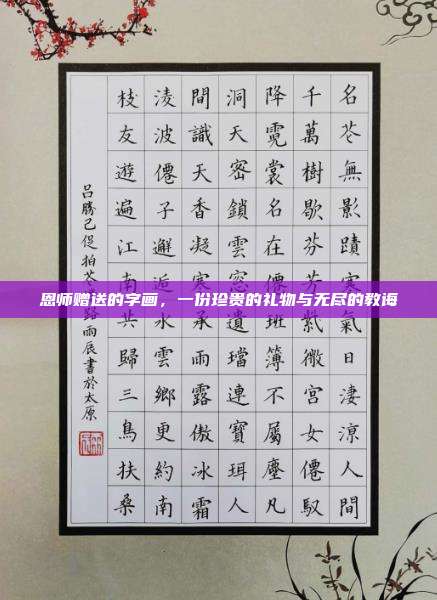 名芲無影蹟寒氣日淒涼人間
千萬樹歇芬芳紫微宮女僊馭
降霓裳名在僊班簿不屬塵凡
洞天密鎖雲窓遺璫連寶珥人
間識天香凝寒承雨露傲冰霜
淩波僊子邂逅水雲鄉更約南
枝友遊遍江南共歸三鳥扶桑
呂勝己促拍芲路雨辰書於太原
恩师赠送的字画，一份珍贵的礼物与无尽的教诲